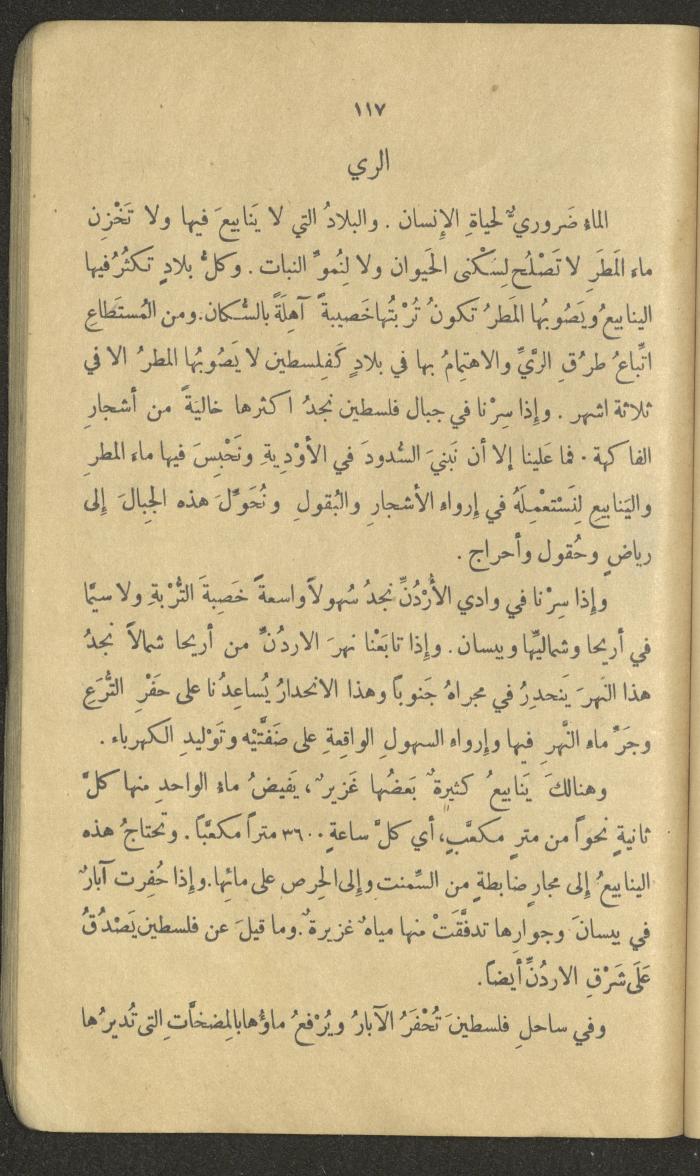 ١١٧
الري
الماء ضَروريٌّ لحياةِ الإنسان . والبلادُ التي لا يَنابيعَ فيها ولا تَخْزِن
ماء المَطَرِ لا تَصْلُح لِسَكْنى الحَيوان ولا لِنُموِّ النبات . وكلُّ بلادٍ تكثُرُ فيها
الينابيعُ ويَصُوبُها المَطرُ تكونُ تُرْبتُها خَصيبةً آهِلَةً بالسُّكان . ومن المُستَطاعِ
اتِّباعُ طرُقِ الرَّيِّ والاهتِمامُ بها في بلادٍ كَفِلسطين لا يَصُوبُها المطرُ الا في
ثلاثة اشهر . وإذا سِرْنا في جبال فلسطين نجدُ اكثرها خاليَةً من أشجارِ
الفاكهة . فما عَلينا إلا أن نَبنيَ السُّدودَ في الأوْديةِ ونَحْبِسَ فيها ماء المطرِ
واليَنابيعِ لِنَستَعْمِلَهُ في إرواءِ الأشجارِ والبُقولِ ونُحَوِّلَ هذه الجِبالَ إلى
رياضٍ وحُقول وأحراج .
وإذا سِرْنا في وادي الأُرْدُنِّ نجدُ سُهولاً واسعةً خَصِبةَ التُّرْبةِ ولا سيَّما
في أريحا وشماليِّها وبيسان . وإذا تابَعْنا نهرَ الاردُنِّ من أريحا شمالاً نجدُ
هذا النَهرَ يَنحدِرُ في مجراهُ جَنوباً وهذا الانحدارُ يُساعِدُنا على حَفْرِ التُّرَعِ
وجَرِّ ماءِ النَّهرِ فيها وإرواءِ السهولِ الواقِعةِ على ضَفَّتَيْه وتَوْليدِ الكهرباء .
وهنالكَ يَنابيعُ كثيرةٌ بَعضُها غَزيرٌ ، يَفيضُ ماءُ الواحدِ منها كلَّ
ثانيةٍ نحوَاً من مترٍ مكعَّبٍ ، أي كلَّ ساعةٍ ٣٦٠٠ متراً مكعَّباً . وتحتاجُ هذه
الينابيعُ إلى مجارٍ ضابطةٍ من السِّمنت وإلى الحِرص على مائِها . وإذا حُفِرت آبارٌ
في بيسانَ وجوارِها تدفَّقَتْ منها مياهٌ غزيرةٌ . وما قيلَ عن فلسطين يَصْدُقُ
عَلَى شَرْقِ الاردُنِّ أيضاً .
وفي ساحلِ فلسطينَ تُحْفَرُ الآبارُ ويُرْفعُ ماؤُها بالمِضخَّاتِ التي تُديرُها